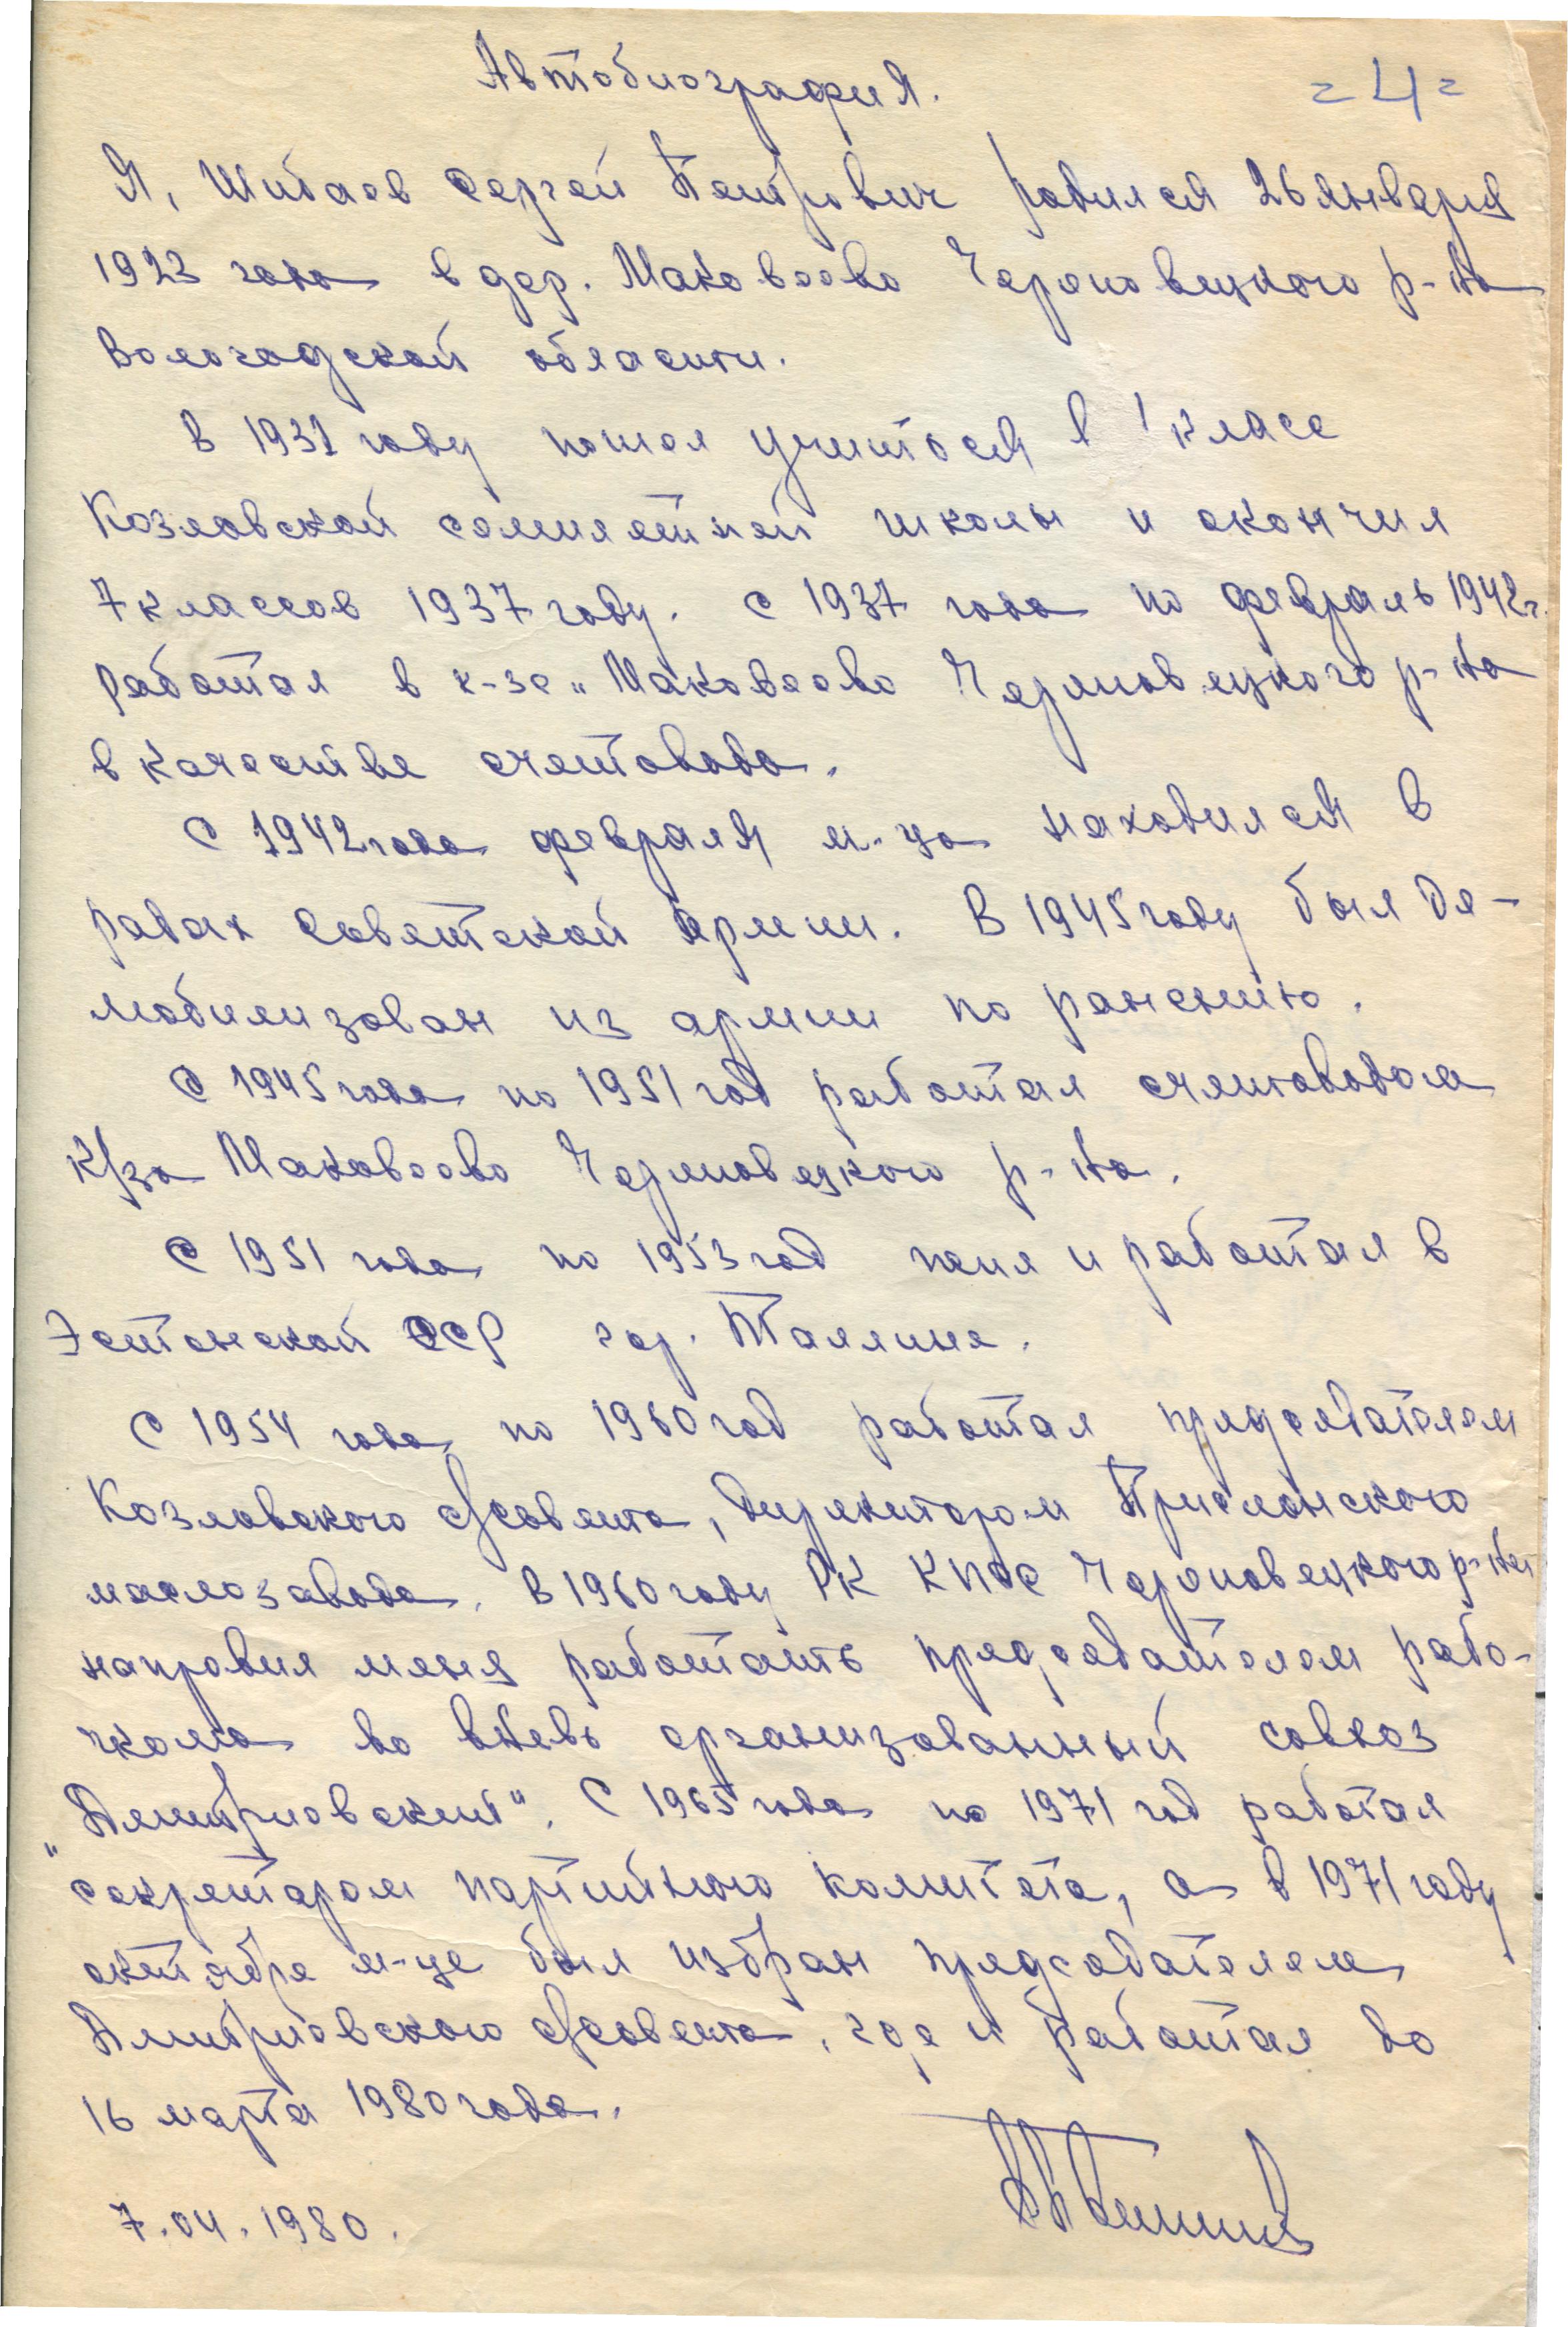 Автобиография.
= 4 =
Я, Шибаев Сергей Петрович родился 26 января
1923 года в дер. Маковеево Череповецкого р-на
Вологодской области.
В 1931 году пошел учиться в 1 класс
Козловской семилетней школы и окончил
7 классов 1937 году. С 1937 года по февраль 1942 г.
работал в к-зе „Маковеево Череповецкого р-на
в качестве счетовода.
С 1942 года февраля м-ца находился в
рядах Советской Армии. В 1945 году был де-
мобилизован из армии по ранению.
С 1945 года по 1951 год работал счетоводом
к/за Маковеево Череповецкого р-на.
С 1951 года по 1953 год жил и работал в
Эстонской ССР гор. Таллине.
С 1954 года по 1960 год работал председателем
Козловского с/совета, директором Присмонского
маслозавода. В 1960 году РК КПСС Череповецкого р-на
направил меня работать председателем рабо-
чкома во вновь организованный совхоз
„Дмитриевский". С 1965 года по 1971 год работал
секретарем партийного комитета, а в 1971 году
октябре м-це был избран председателем
Дмитриевского с/совета, где и работал до
16 марта 1980 года.
7.04.1980.